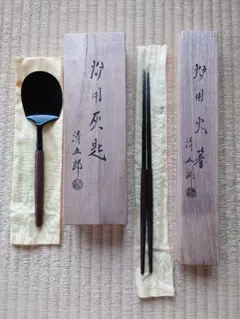 炉用灰匙
清五郎
炉用火箸
清五郎